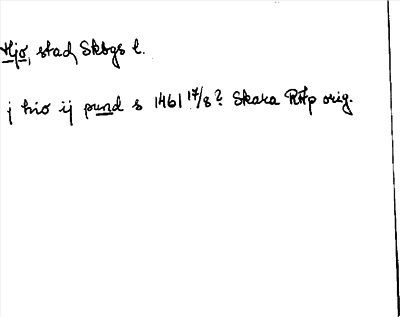 Hjo, stad, Skbgs l.
j hio ij pund s 1461 17/8? Skara RAp orig.